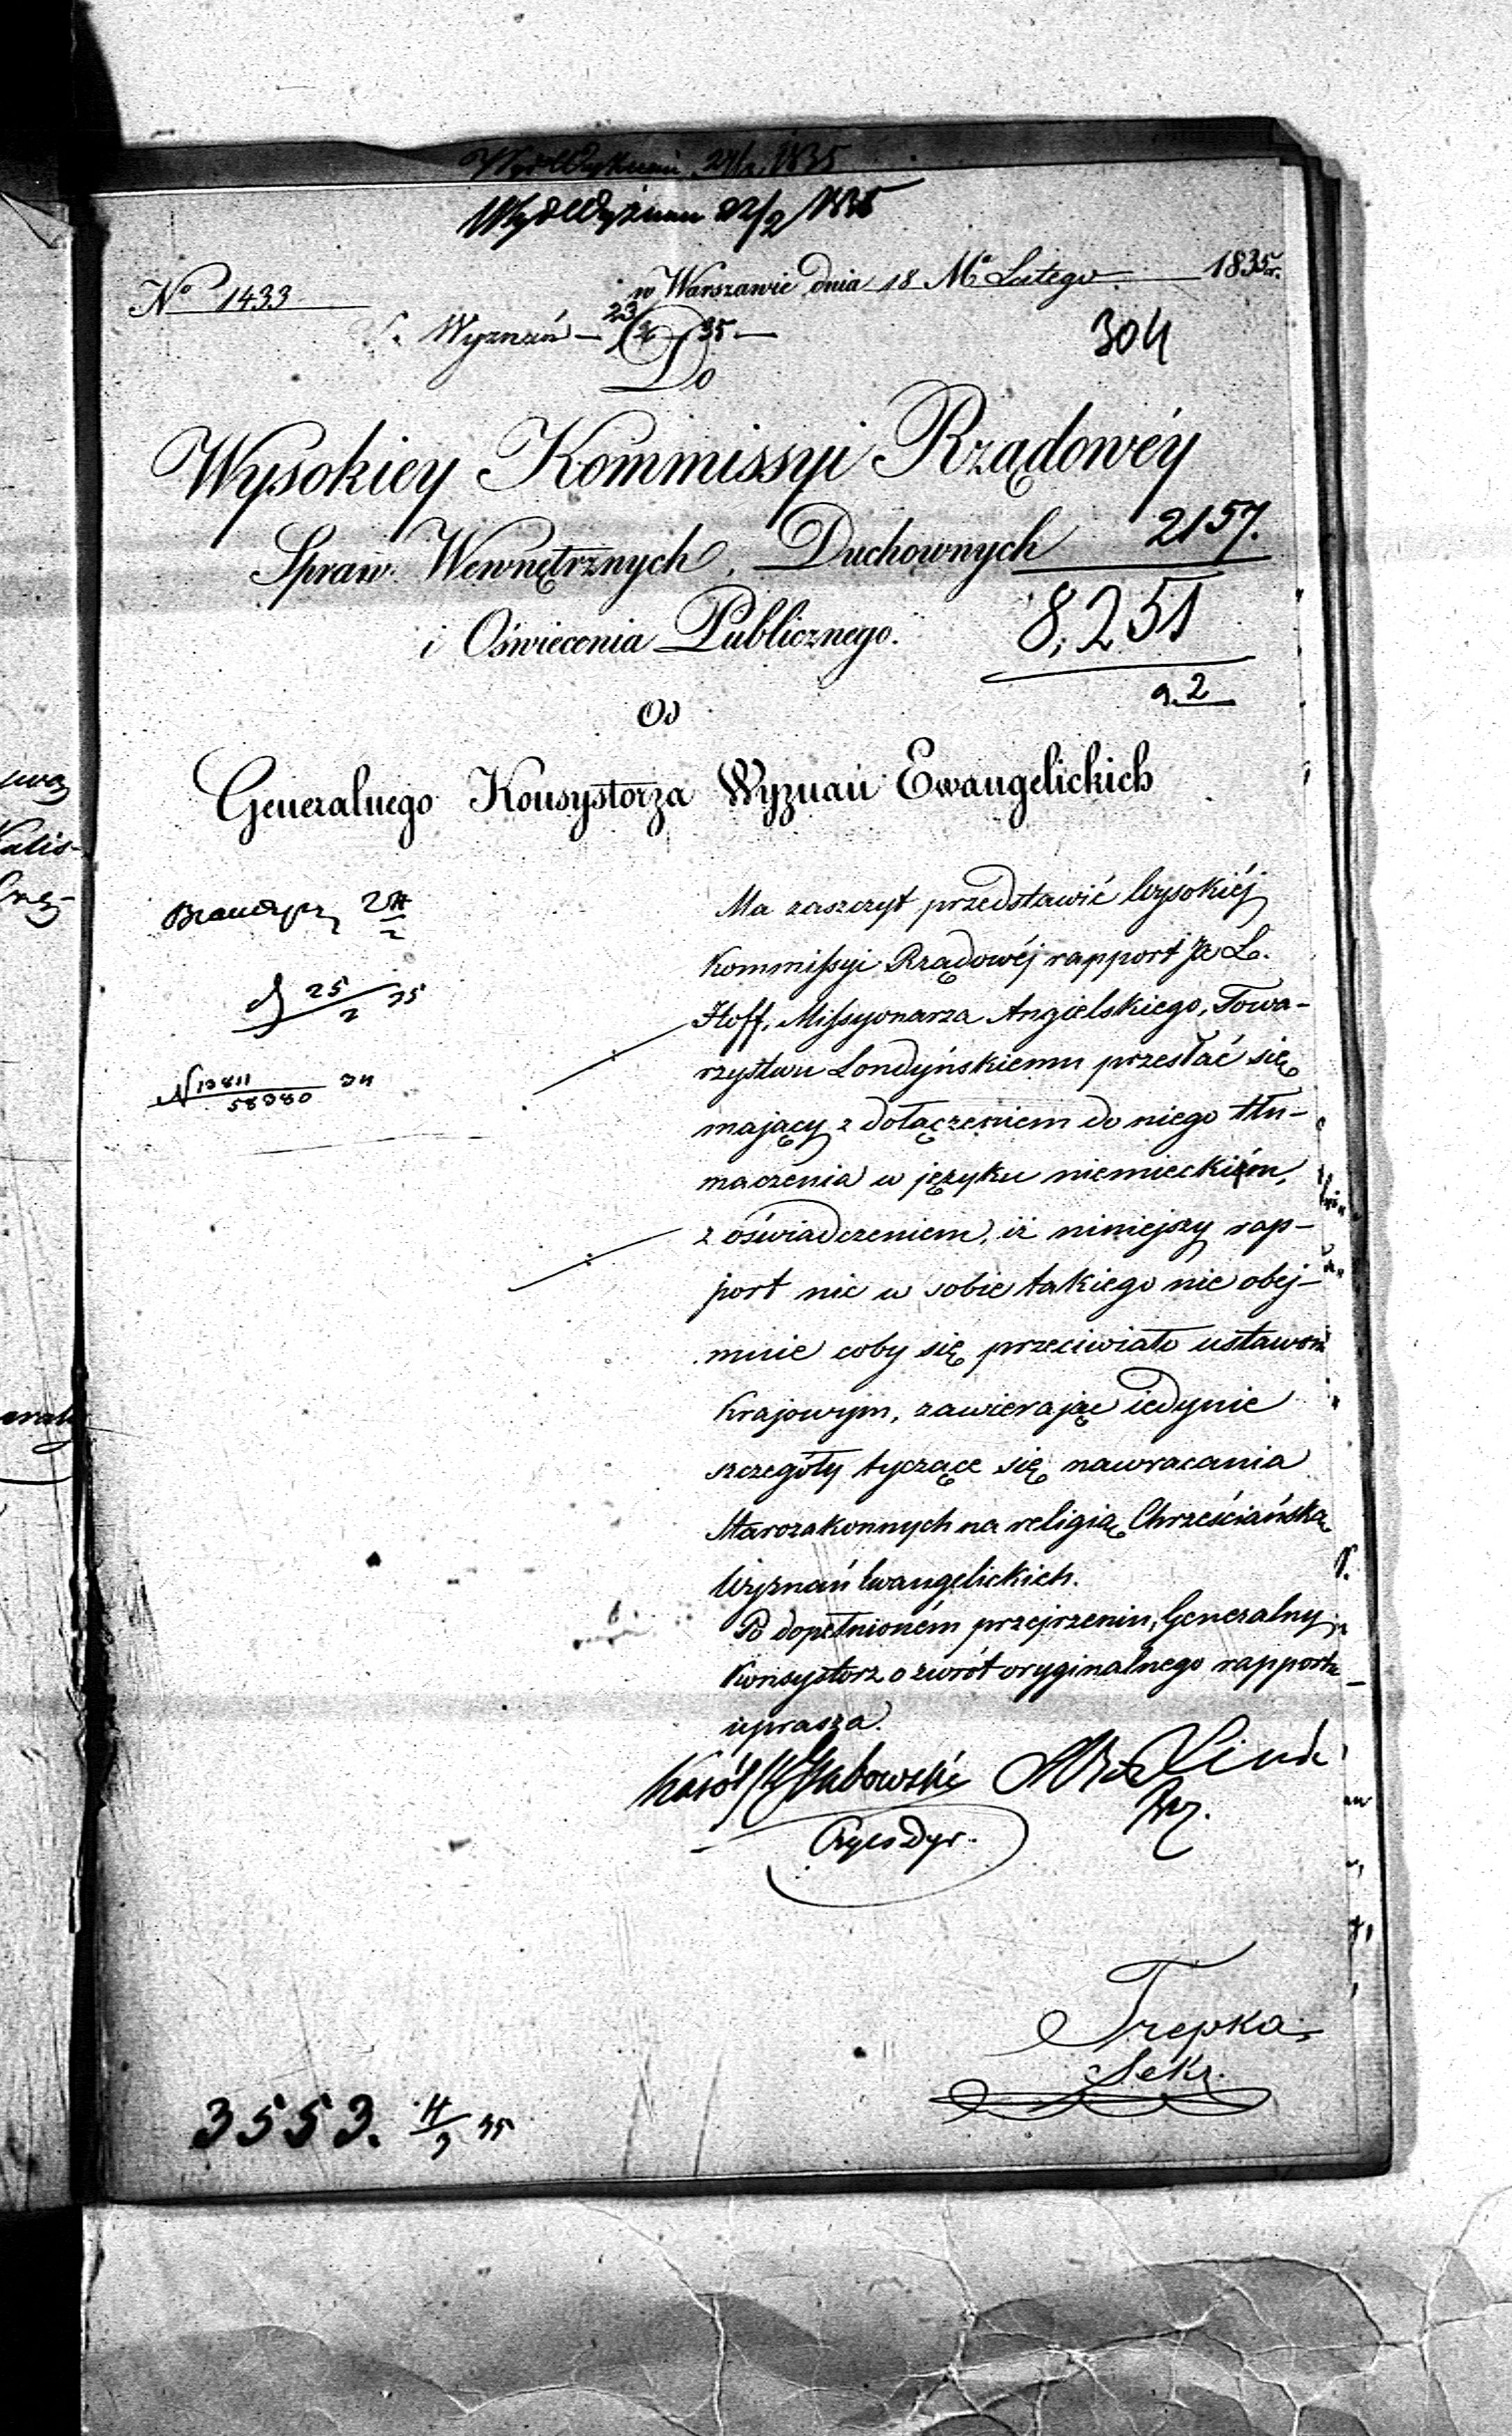 Wydl Wyznan 22/2 1835
No 1433
w Warszawie dnia 18 Ma Lutego 1835 r.
Wyznań 23/2 35
304
Do
Wysokiey Kommissyi Rządowéy
Spraw Wewnętrznych, Duchownych
2157.
i Oświecenia Publicznego.
8,251
a. 2
Od
Generalnego Konsystorza Wyznań Ewangelickich
25/2 35
N 13811/58380 34
Ma zaszczyt przedstawić Wysokiéj
Kommissyi Rządowéj rapport L.
Hoff, Missyonarza Angielskiego, Towa-
rzystwu Londyńskiemu przesłać się
mający z dołączeniem do niego tłu-
maczenia w języku niemieckim,
z oświadczeniem, iż niniejszy rap-
port nic w sobie takiego nie obej-
muie coby się przeciwiało ustawom
Krajowym, zawierając iedynie
szczegóły tyczące się nawracania
Starozakonnych na religią Chrześciańską
Wyznań Ewangelickich.
Po dopełnioném przejrzeniu, Generalny
Konsystorz o zwrót oryginalnego rapportu
uprasza.
Trepka
Sekr.
3553. 4/3 35